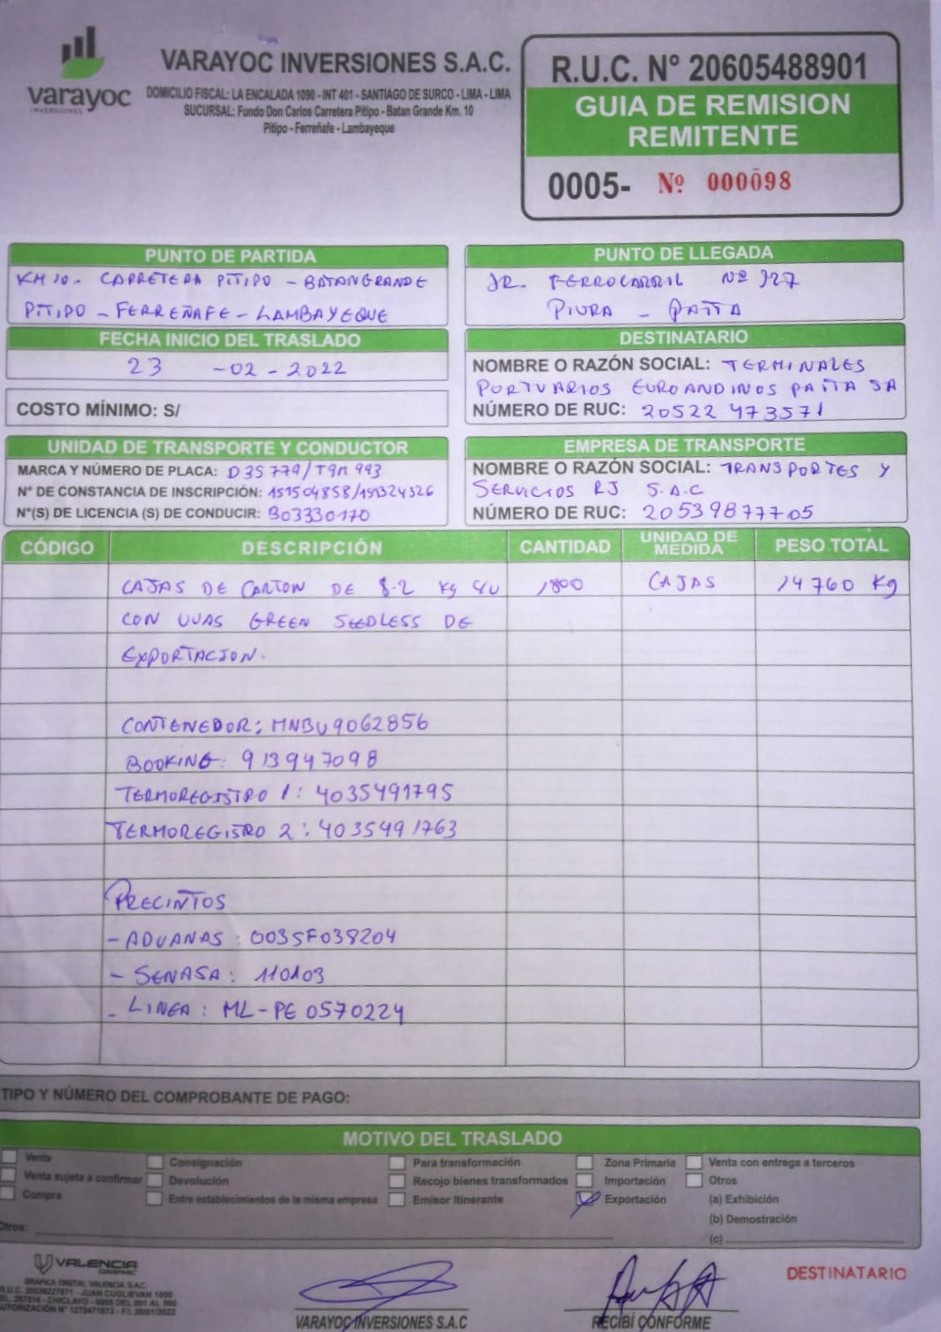 varayoc
INVERSIONES
VARAYOC INVERSIONES S.A.C.
DOMICILIO FISCAL: LA ENCALADA 1090 - INT 401 - SANTIAGO DE SURCO - LIMA - LIMA
SUCURSAL: Fundo Don Carlos Carretera Pitipo - Batan Grande Km. 10
Pitipo - Ferreñafe - Lambayeque
R.U.C. N° 20605488901
GUIA DE REMISION
REMITENTE
0005- Nº 000098
PUNTO DE PARTIDA
KM 10. CARRETERA PITIPO - BATANGRANDE
PITIPO - FERREÑAFE - LAMBAYEQUE
PUNTO DE LLEGADA
JR. FERROCARRIL Nº 127
PIURA - PAITA
FECHA INICIO DEL TRASLADO
23 -02-2022
COSTO MÍNIMO: S/
DESTINATARIO
NOMBRE O RAZÓN SOCIAL: TERMINALES
PORTUARIOS EUROANDINOS PAITA SA
NÚMERO DE RUC: 20522473571
UNIDAD DE TRANSPORTE Y CONDUCTOR
MARCA Y NÚMERO DE PLACA: D3S 779/T9M 993
N° DE CONSTANCIA DE INSCRIPCIÓN: 151504858/151324326
N°(S) DE LICENCIA (S) DE CONDUCIR: B03330170
EMPRESA DE TRANSPORTE
NOMBRE O RAZÓN SOCIAL: TRANSPORTES Y
SERVICIOS RJ S.A.C
NÚMERO DE RUC: 20539877705
CÓDIGO DESCRIPCIÓN CANTIDAD UNIDAD DE MEDIDA PESO TOTAL
CAJAS DE CARTON DE 8.2 Kg C/U 1800 CAJAS 14760 Kg
CON UVAS GREEN SEEDLESS DE
EXPORTACION.
CONTENEDOR: MNBU9062856
BOOKING: 913947098
TERMOREGISTRO 1: 4035491795
TERMOREGISTRO 2: 4035491763
PRECINTOS
- ADUANAS: 003SF038204
- SENASA: 110103
- LINEA: ML-PE 0570224
TIPO Y NÚMERO DEL COMPROBANTE DE PAGO:
MOTIVO DEL TRASLADO
Venta Consignación Para transformación Zona Primaria Venta con entrega a terceros
Venta sujeta a confirmar Devolución Recojo bienes transformados Importación Otros
Compra Entre establecimientos de la misma empresa Emisor Itinerante Exportación (a) Exhibición
(b) Demostración
Otros: (c)
VALENCIA
GRAFICA DIGITAL VALENCIA S.A.C.
DESTINATARIO
VARAYOC INVERSIONES S.A.C
RECIBÍ CONFORME